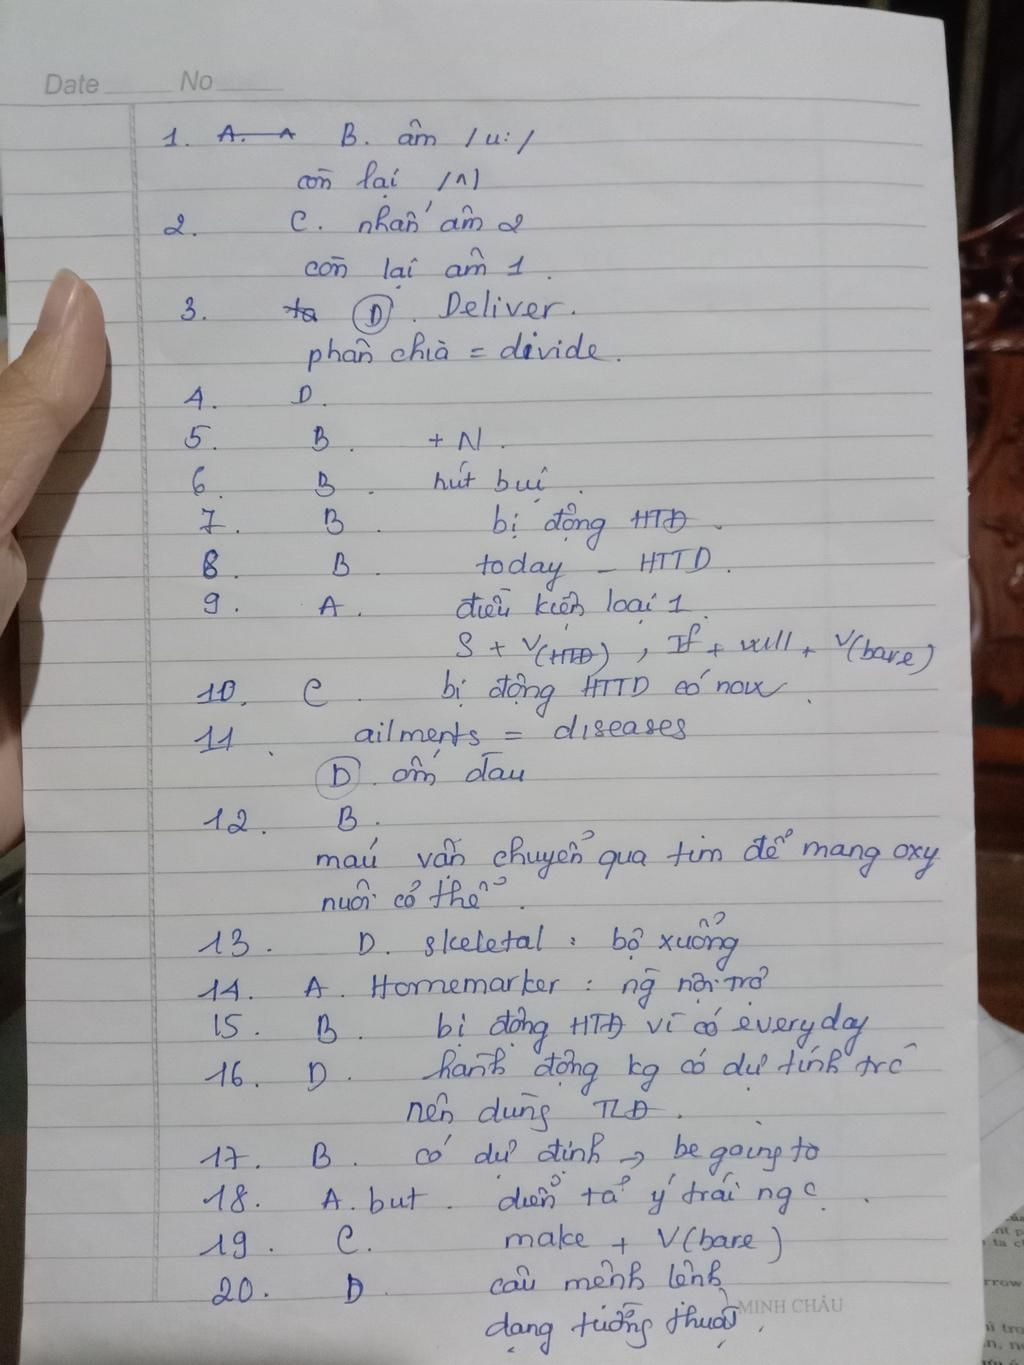 Date No
1. A. A B. âm /u:/
còn lại /ʌ/
2. C. nhấn âm 2
còn lại âm 1.
3. to D. Deliver.
phân chia = divide.
4. D.
5. B. + N.
6. B. hút bụi.
7. B. bị động HTĐ.
8. B. today - HTTD.
9. A. điều kiện loại 1.
S + V(HTĐ), If + will + V(bare)
10. C. bị động HTTD có now.
11. ailments = diseases
D. ốm đau
12. B.
máu vận chuyển qua tim để mang oxy
nuôi cơ thể.
13. D. skeletal : bộ xương
14. A. Homemarker : ng nội trợ
15. B. bị động HTĐ vì có everyday
16. D. hành động kg có dự tính trc
nên dùng TLĐ.
17. B. có dự định → be going to
18. A. but. diễn tả ý trái ngc.
19. C. make + V(bare)
20. D. câu mệnh lệnh
dạng tường thuật.
MINH CHÂU